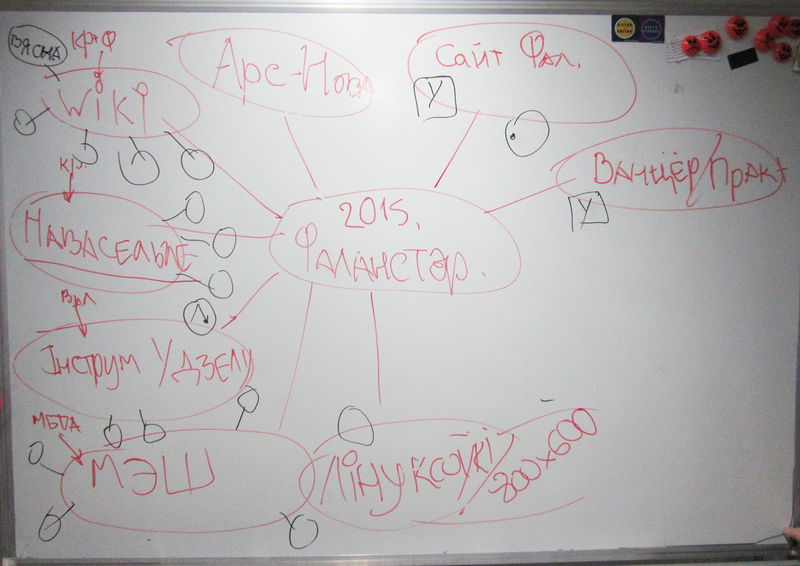 вясна
Кр+Ф
Wiki
Арс-Нова
Сайт Фал.
У
Валнцёр/Практ
У
Кр.
Навасельле
2015.
Фаланстэр.
Л
Інструм Удзелу
МЭТА
МЭШ
Лінуксоўкі/
800х600